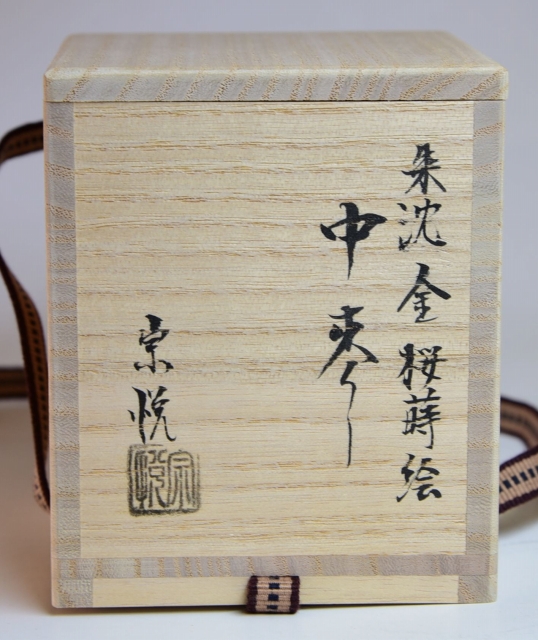 朱沈金桜蒔絵
中棗
宗悦
宗悦